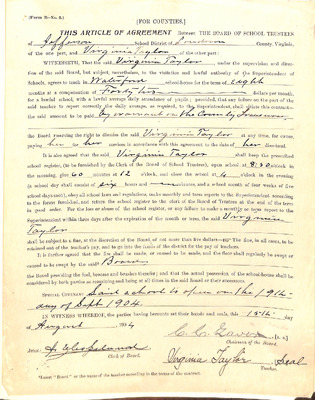 (Form B—No. 5.)
[FOR COUNTIES.]
THIS ARTICLE OF AGREEMENT Between THE BOARD OF SCHOOL TRUSTEES
of Jefferson School District of Loudoun County, Virginia,
of the one part, and Virginia Taylor of the other part:
WITNESSETH, That the said Virginia Taylor, under the supervision and direc-
tion of the said Board, but subject, nevertheless, to the visitation and lawful authority of the Superintendent of
Schools, agrees to teach in Waterford schoolhouse for the term of eight
months at a compensation of Forty two dollars per month,
for a lawful school, with a lawful average daily attendance of pupils; provided, that any failure on the part of the
said teacher to report correctly the daily average, as required by the Superintendent, shall vitiate this contract—
the said amount to be paid by warrant on the County Treasurer,
the Board reserving the right to dismiss the said Virginia Taylor at any time, for cause,
paying her for her services in accordance with this agreement to the date of her dismissal.
It is also agreed that the said Virginia Taylor shall keep the prescribed
school register, (to be furnished by the Clerk of the Board of School Trustees), open school at 8:30 o'clock in
the morning, give 60 minutes at 12 o'clock, and close the school at 4 o'clock in the evening
(a school day shall consist of six hours and minutes, and a school month of four weeks of five
school days each), obey all school laws and regulations, make monthly and term reports to the Superintendent according
to the forms furnished, and return the school register to the clerk of the Board of Trustees at the end of the term
in good order. For the loss or abuse of the school register, or any failure to make a monthly or term report to the
Superintendent within three days after the expiration of the month or term, the said Virginia
Taylor
shall be subject to a fine, at the discretion of the Board, of not more than five dollars—the fine, in all cases, to be
retained out of the teacher's pay, and to go into the funds of the district for the pay of teachers.
It is further agreed that the fire shall be made, or caused to be made, and the floor shall regularly be swept or
caused to be swept by the said Board
the Board providing the fuel, brooms and brushes therefor; and that the actual possession of the school-house shall be
considered by both parties as remaining and being at all times in the said Board or their successors.
SPECIAL COVENANT: Said school to open on the 19th
day of Sept. 1904
IN WITNESS WHEREOF, the parties having hereunto set their hands and seals, this 15th day
of August 1904
[L. S.]
Chairman of the Board.
Clerk of Board.
Virginia Taylor Seal
Teacher.